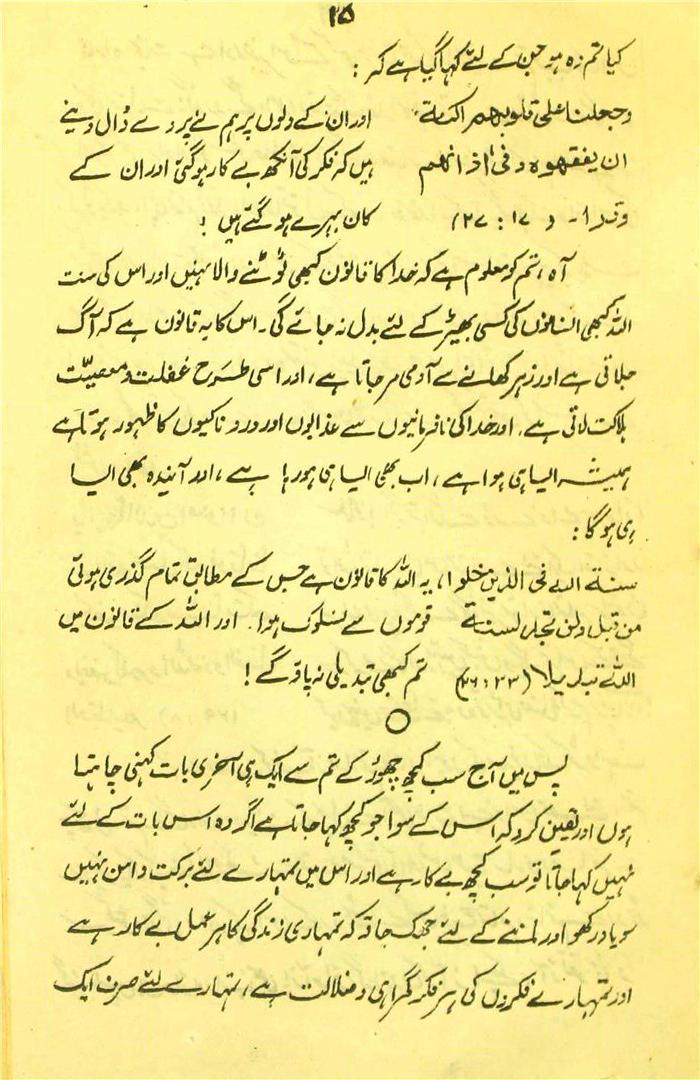 ۲۵
کیا تم وہ ہو جن کے لئے کہا گیا ہے کہ :
وجعلنا علی قلوبھم اکنۃ اور ان کے دلوں پر ہم نے پردے ڈال دیئے
ان یفقھوہ وفی اذانھم ہیں کہ فکر کی آنکھ بے کار ہو گئی اور ان کے
وقرا۔ (۱۷ : ۴۷) کان بہرے ہو گئے ہیں !
آہ ، تم کو معلوم ہے کہ خدا کا قانون کبھی ٹوٹنے والا نہیں اور اس کی سنت
اللہ کبھی انسانوں کی کسی بھیڑ کے لئے بدل نہ جائے گی ۔ اس کا یہ قانون ہے کہ آگ
جلاتی ہے اور زہر کھانے سے آدمی مر جاتا ہے ، اور اسی طرح غفلت و معصیت
ہلاکت لاتی ہے ، اور خدا کی نافرمانیوں سے عذابوں اور درد ناکیوں کا ظہور ہوتا ہے
ہمیشہ ایسا ہی ہوا ہے ، اب بھی ایسا ہی ہو رہا ہے ، اور آیندہ بھی ایسا
ہی ہوگا :
سنۃ اللہ فی الذین خلوا ، یہ اللہ کا قانون ہے جس کے مطابق تمام گذری ہوئی
من قبل ولن تجد لسنۃ قوموں سے سلوک ہوا ۔ اور اللہ کے قانون میں
اللہ تبدیلا (۳۳ : ۶۲) تم کبھی تبدیلی نہ پاؤ گے !
پس میں آج سب کچھ چھوڑ کے تم سے ایک ہی آخری بات کہنی چاہتا
ہوں اور یقین کرو کہ اس کے سوا جو کچھ کہا جاتا ہے اگر وہ اس بات کے لئے
نہیں کہا جاتا تو سب کچھ بے کار ہے اور اس میں تمہارے لئے برکت و امن نہیں
سو یاد رکھو اور ماننے کے لئے جھک جاؤ کہ تمہاری زندگی کا ہر عمل بے کار ہے
اور تمہارے فکروں کی ہر فکر گمراہی و ضلالت ہے ، تمہارے لئے صرف ایک